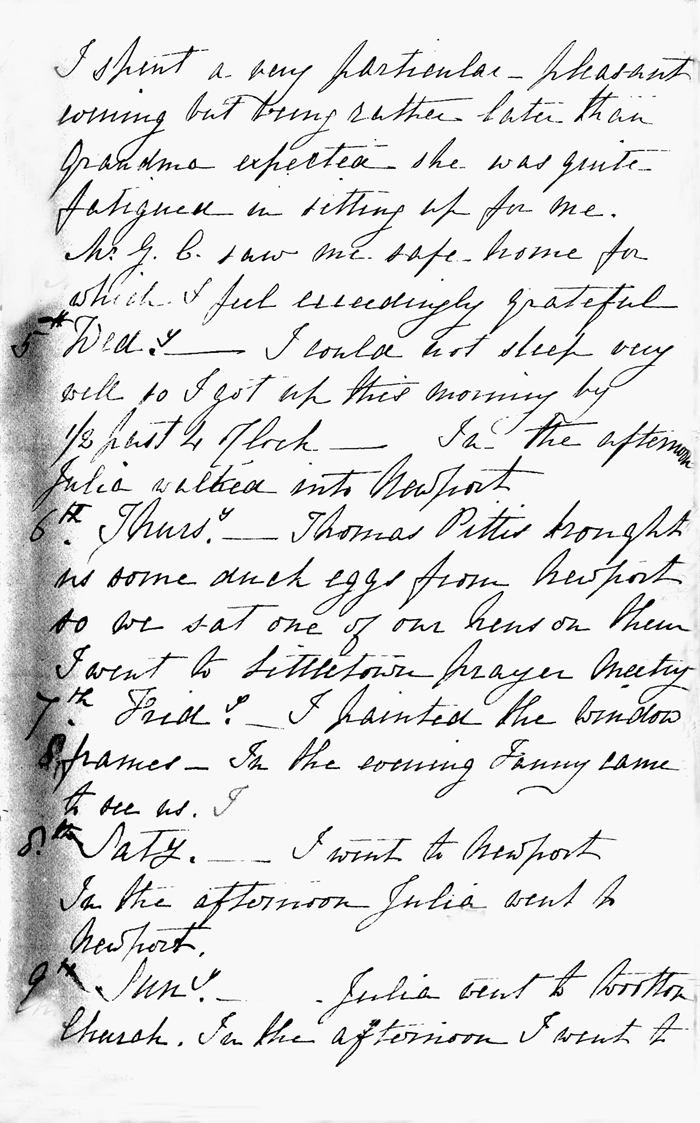 I spent a very particular - pleasant
evening but being rather later than
Grandma expected she was quite
fatigued in sitting up for me.
Mr G. C. saw me safe home for
which I feel exceedingly grateful
5th Wed.y — I could not sleep very
well so I got up this morning by
1/2 past 4 O'Clock — In the afternoon
Julia walked into Newport
6th Thurs.y — Thomas Pittis brought
us some duck eggs from Newport
so we sat one of our hens on them
I went to Littletown prayer Meeting
7th Frid.y — I painted the window
frames — In the evening Fanny came
to see us. I
8th Saty. — I went to Newport
In the afternoon Julia went to
Newport.
9th Sun.y — Julia went to Wootton
Church. In the afternoon I went to